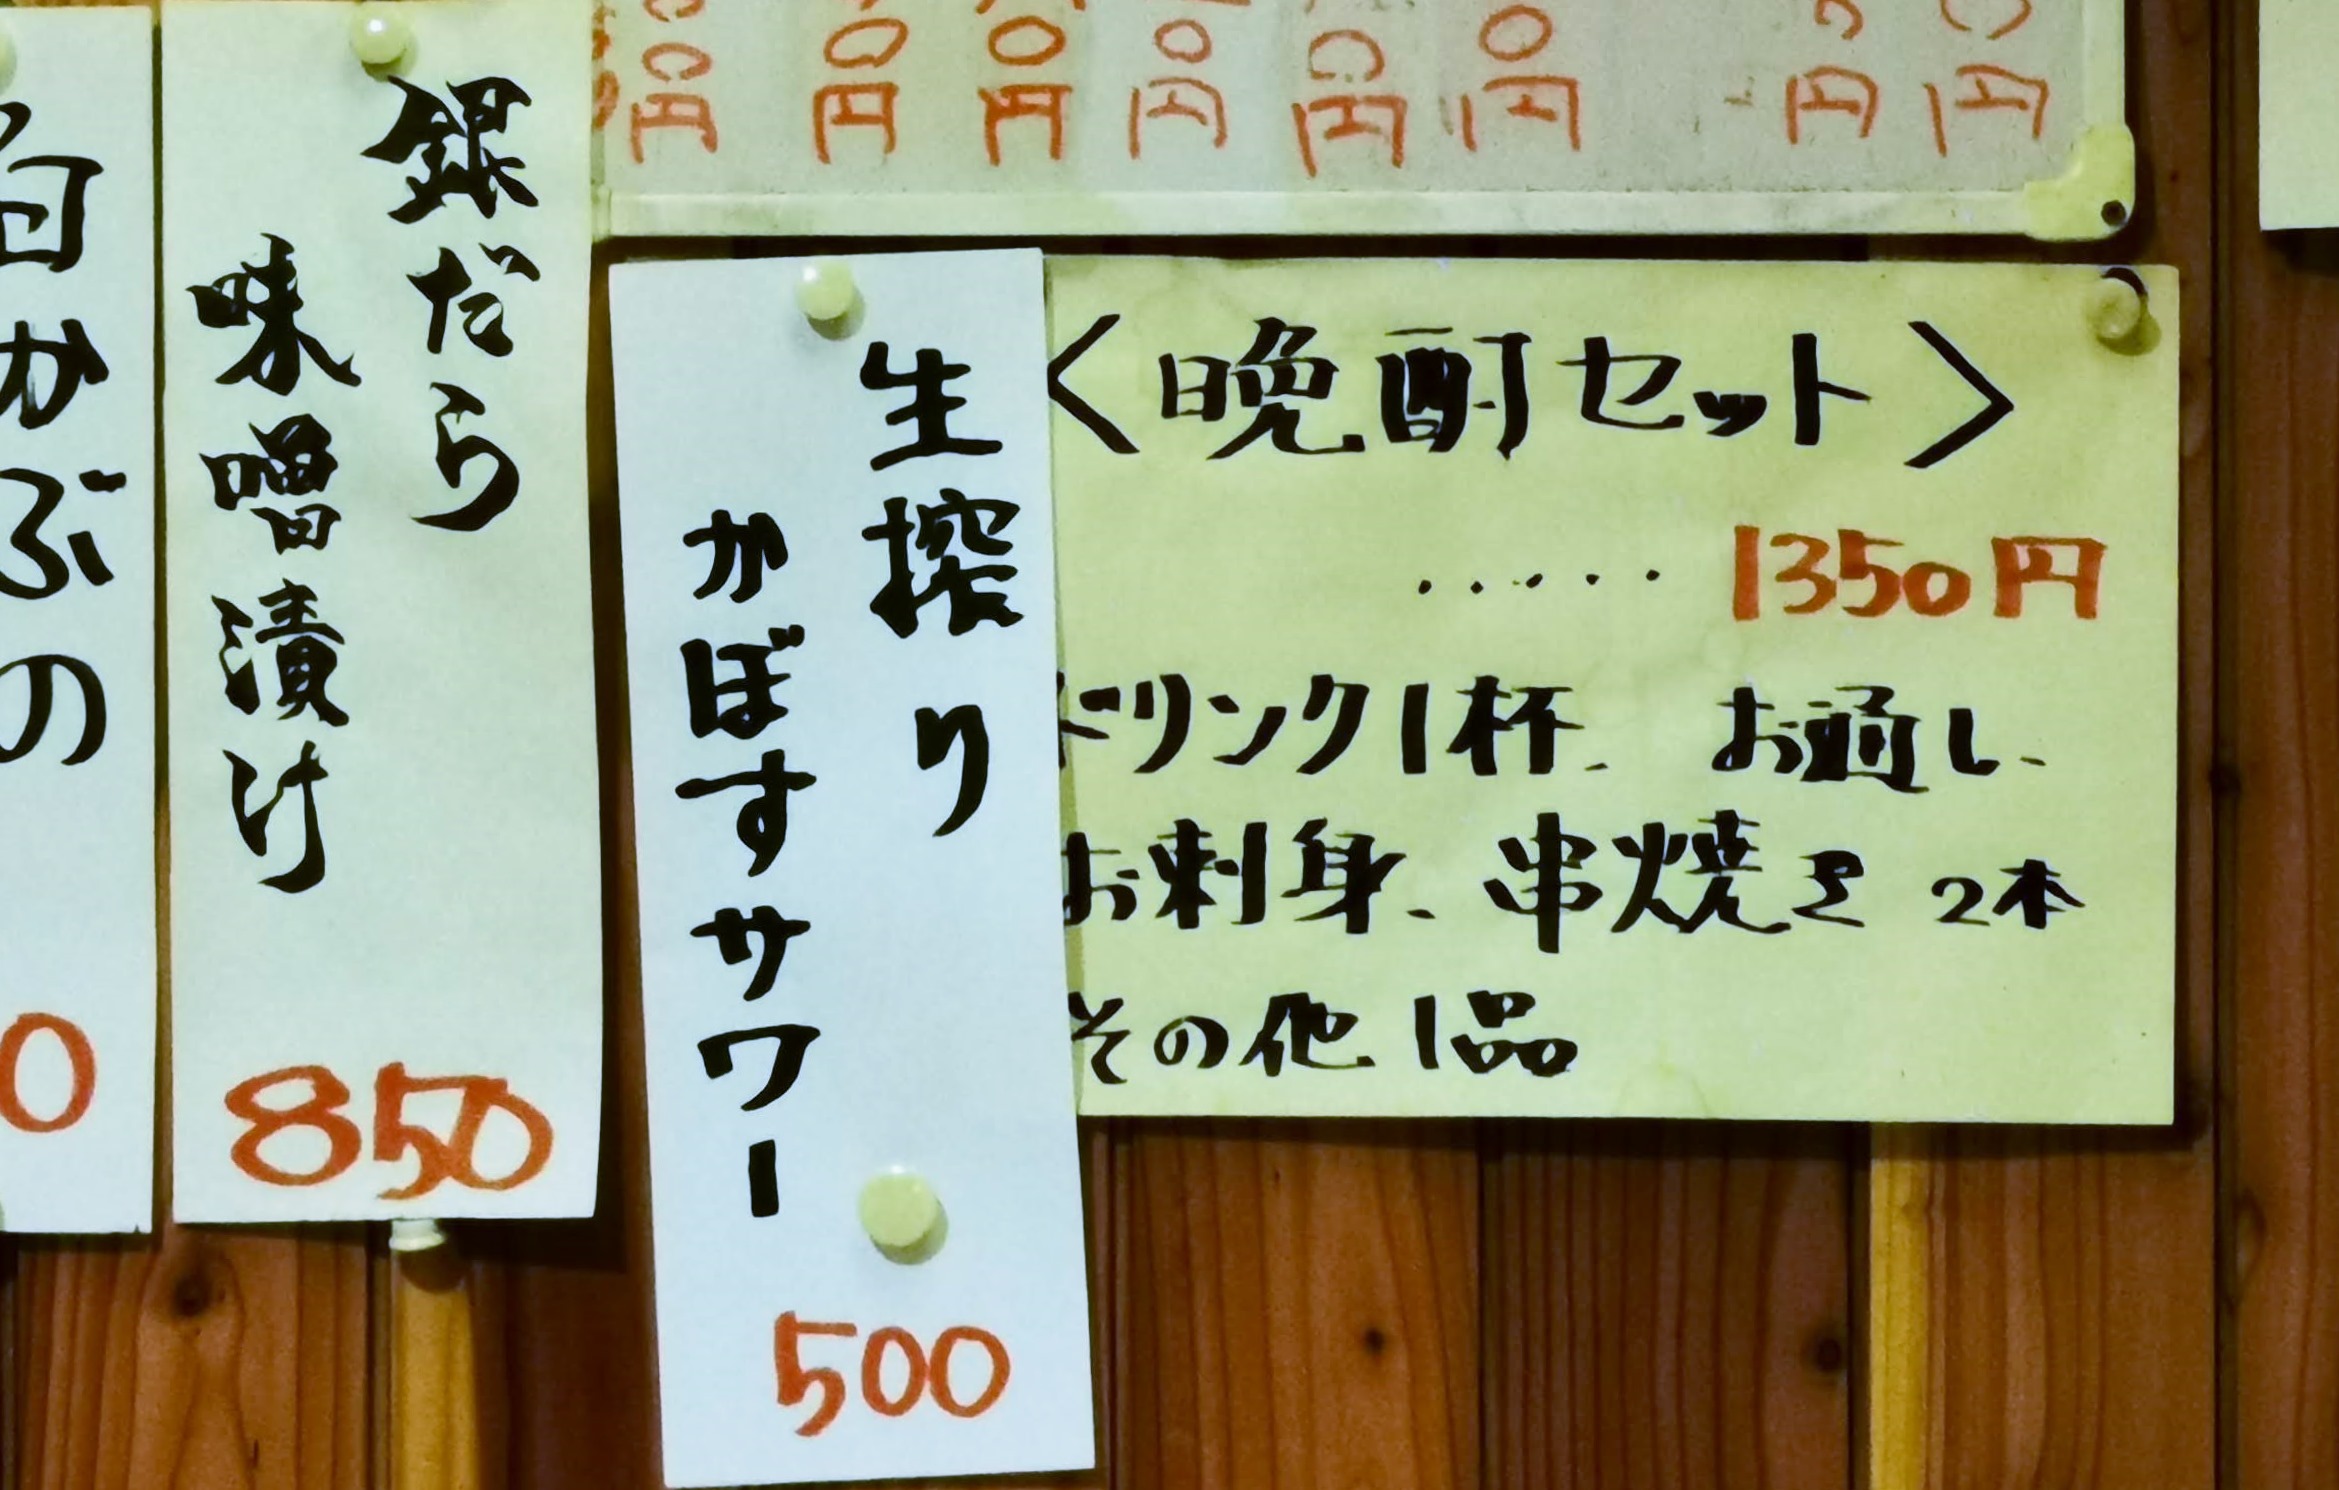 銀だら
味噌漬け
850
生搾り
かぼすサワー
500
〈晩酌セット〉
‥‥‥1350円
ドリンク1杯、お通し、
お刺身、串焼き2本
その他1品
かぶの
0
0円
0円
0円
0円
0円
0円
円
円